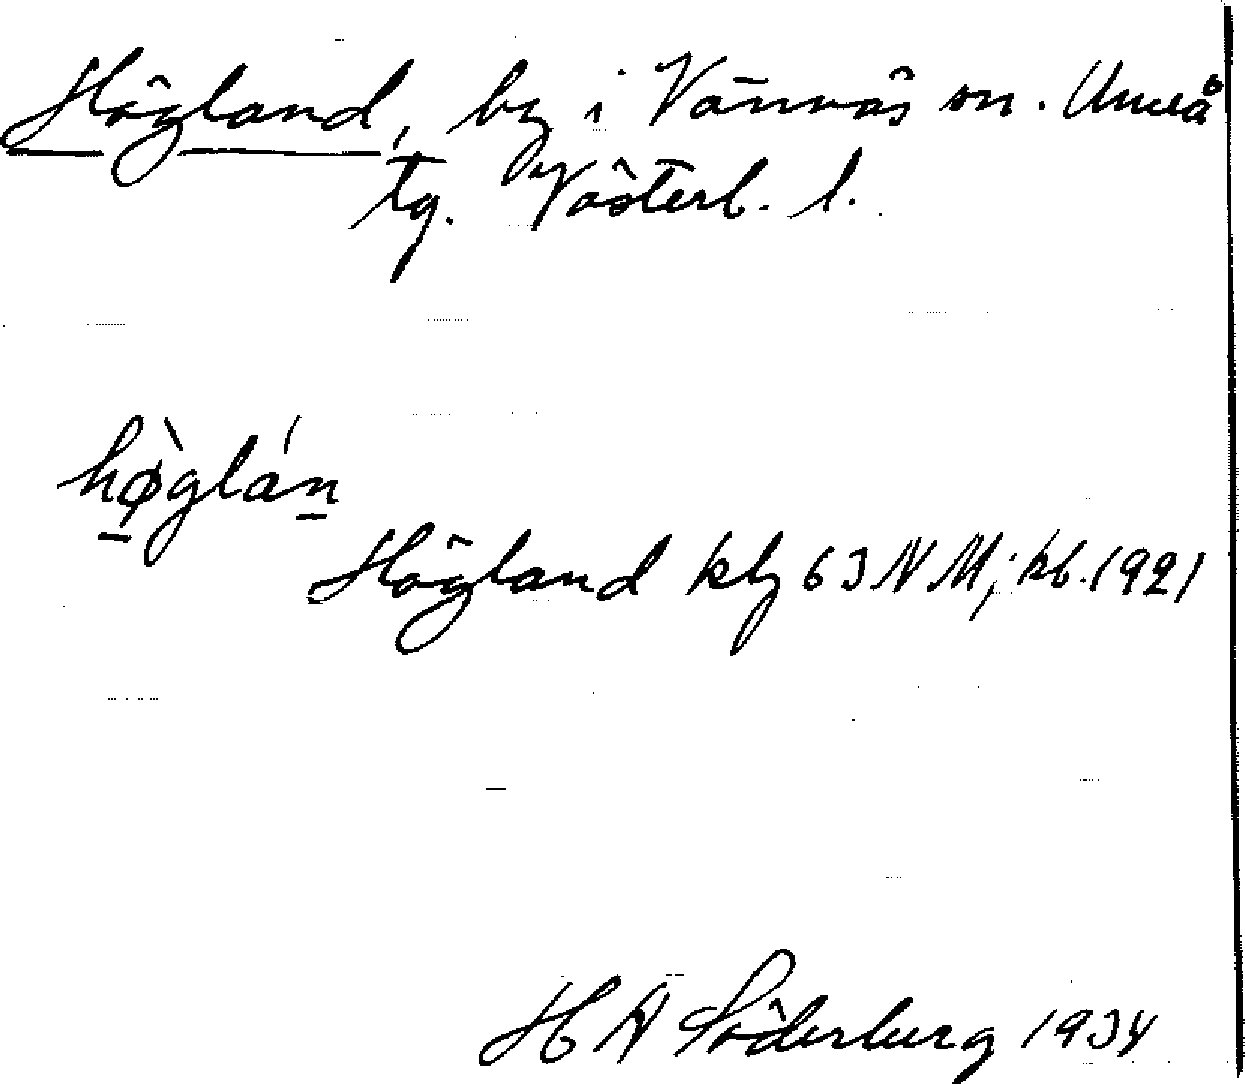 Högland, by i Vännäs sn. Umeå
tg. Västerb. l.
hø̀glán
Högland kbl 63 NV M; kb. 1921
H A Söderberg 1934